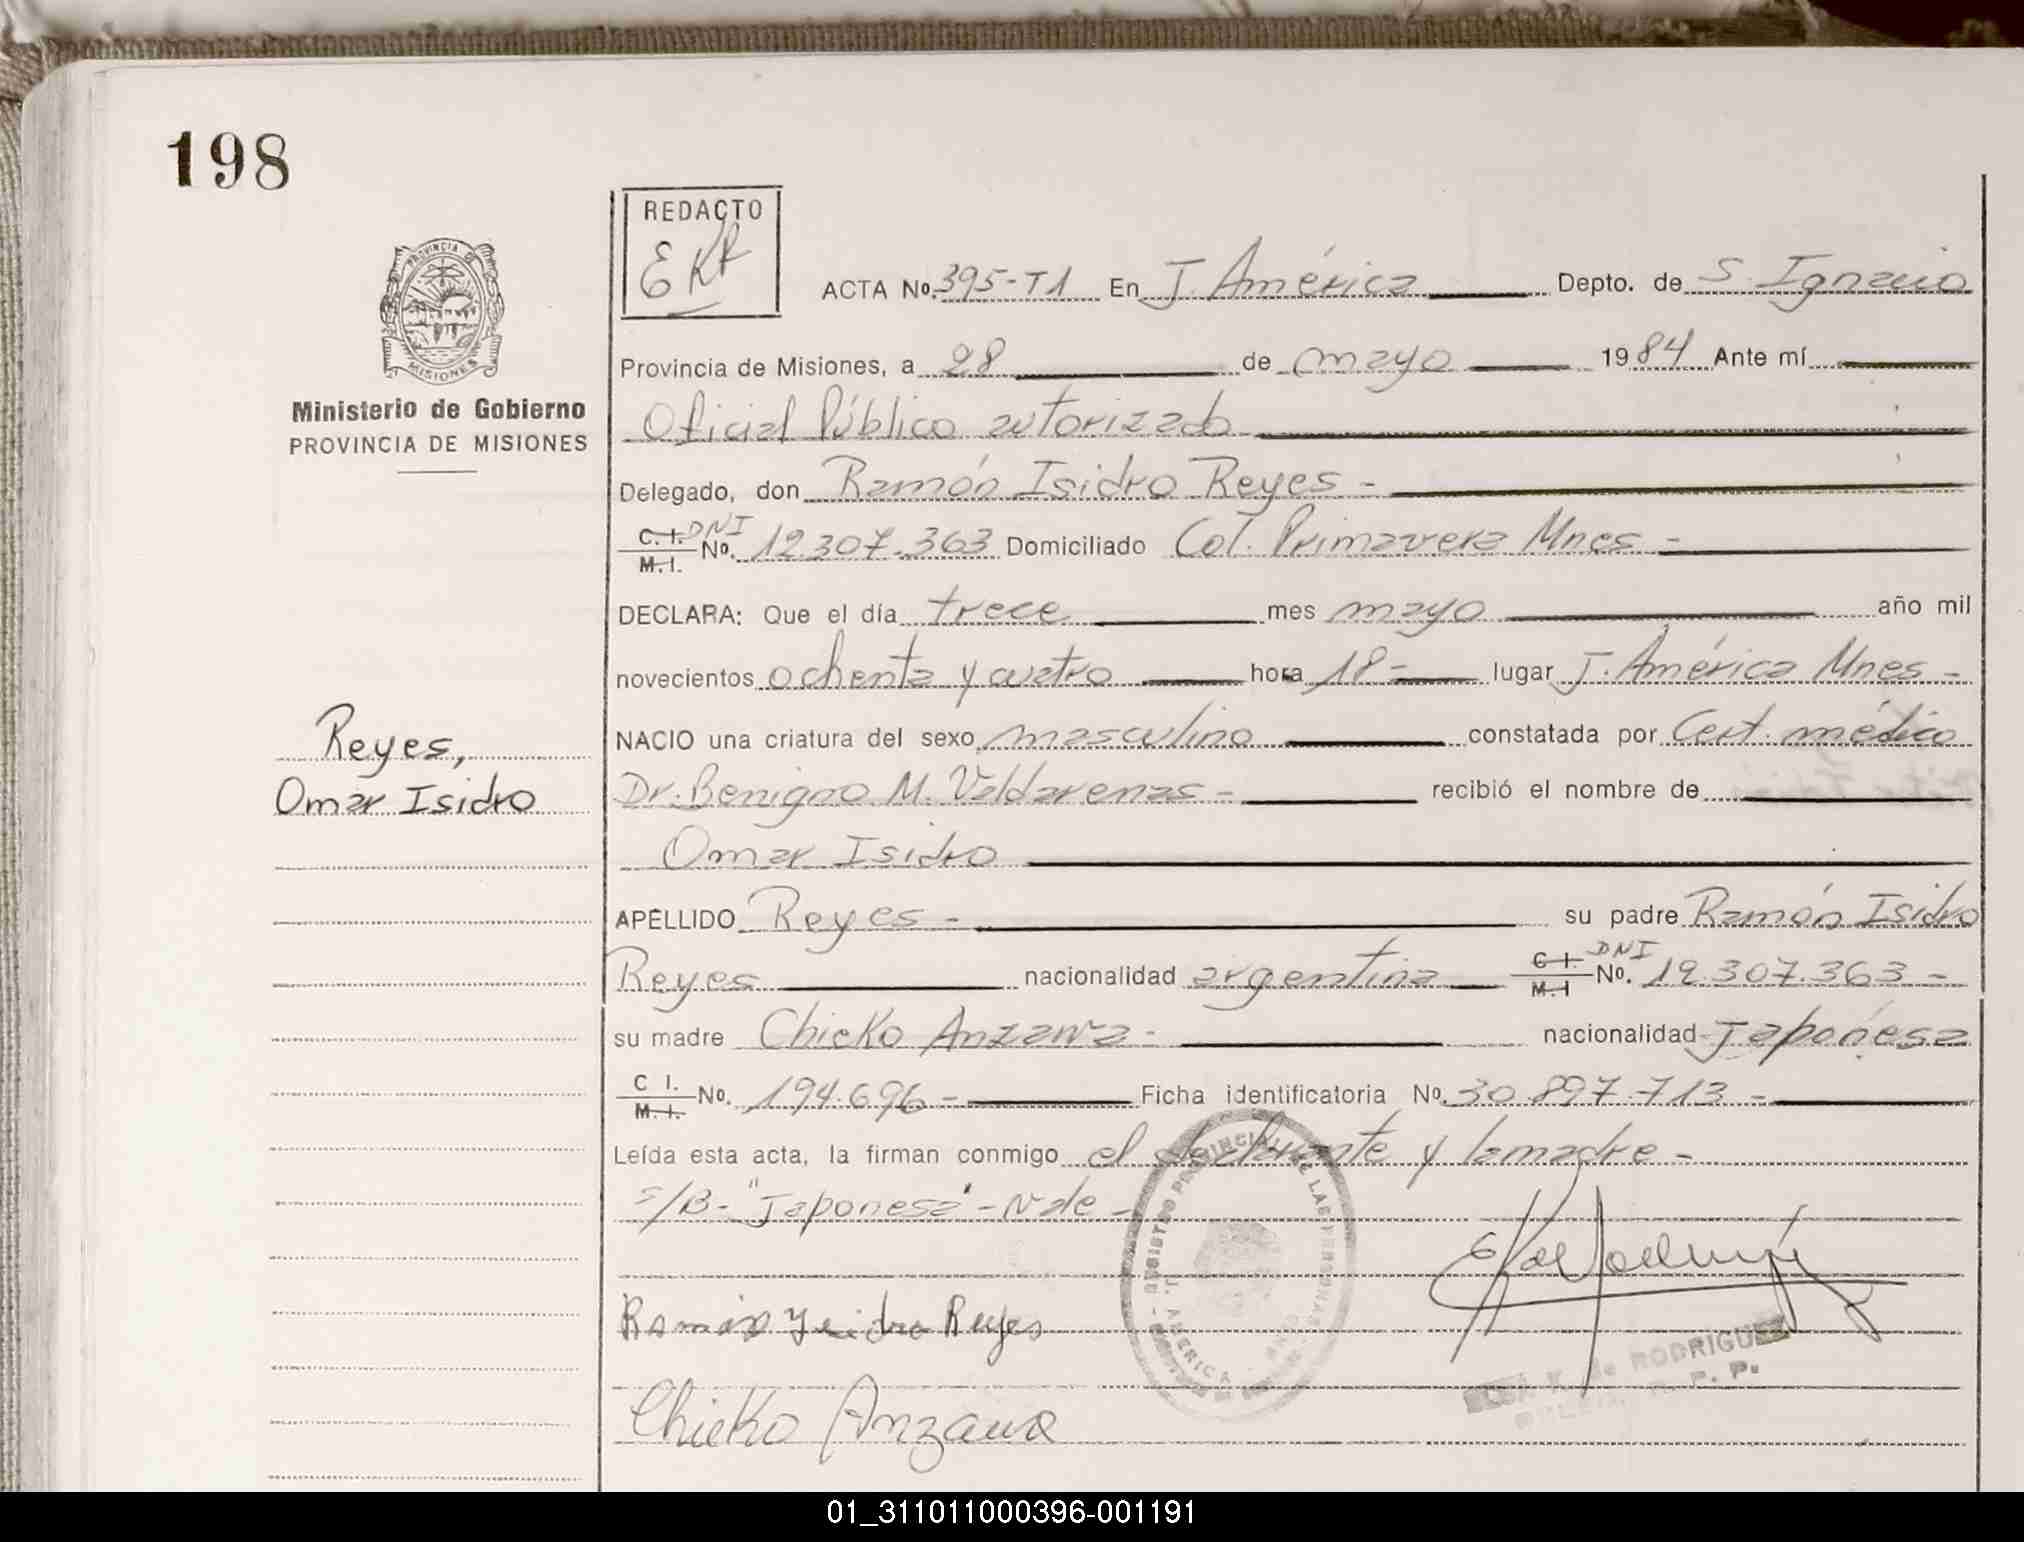 198
REDACTO
EKR
PROVINCIA DE
MISIONES
ACTA No. 395-T1 En J. América Depto. de S. Ignacio
Provincia de Misiones, a 28 de mayo 1984 Ante mí
Ministerio de Gobierno
PROVINCIA DE MISIONES
Oficial Público autorizado
Delegado, don Ramón Isidro Reyes -
C. I. DNI
M. I. No. 12.307.363 Domiciliado Col. Primavera Mnes -
DECLARA: Que el día trece mes mayo año mil
novecientos ochenta y cuatro hora 18- lugar J. América Mnes -
Reyes,
Omar Isidro
NACIO una criatura del sexo masculino constatada por Cert. médico
Dr. Benigno M. Valdarenas - recibió el nombre de
Omar Isidro
APELLIDO Reyes - su padre Ramón Isidro
Reyes nacionalidad argentina C I. DNI
M. I No. 12.307.363 -
su madre Chieko Anzawa - nacionalidad Japonesa
C I.
M. I. No. 194.696 - Ficha identificatoria No. 30.897.713 -
Leída esta acta, la firman conmigo el declarante y la madre -
S/B- "Japonesa" - Vale -
Ramón Isidro Reyes
K. de RODRIGUEZ
Chieko Anzawa
01_311011000396-001191